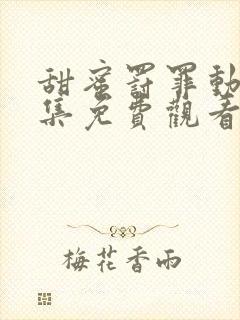 甜蜜罰罪動
集免費觀看
梅花香雨